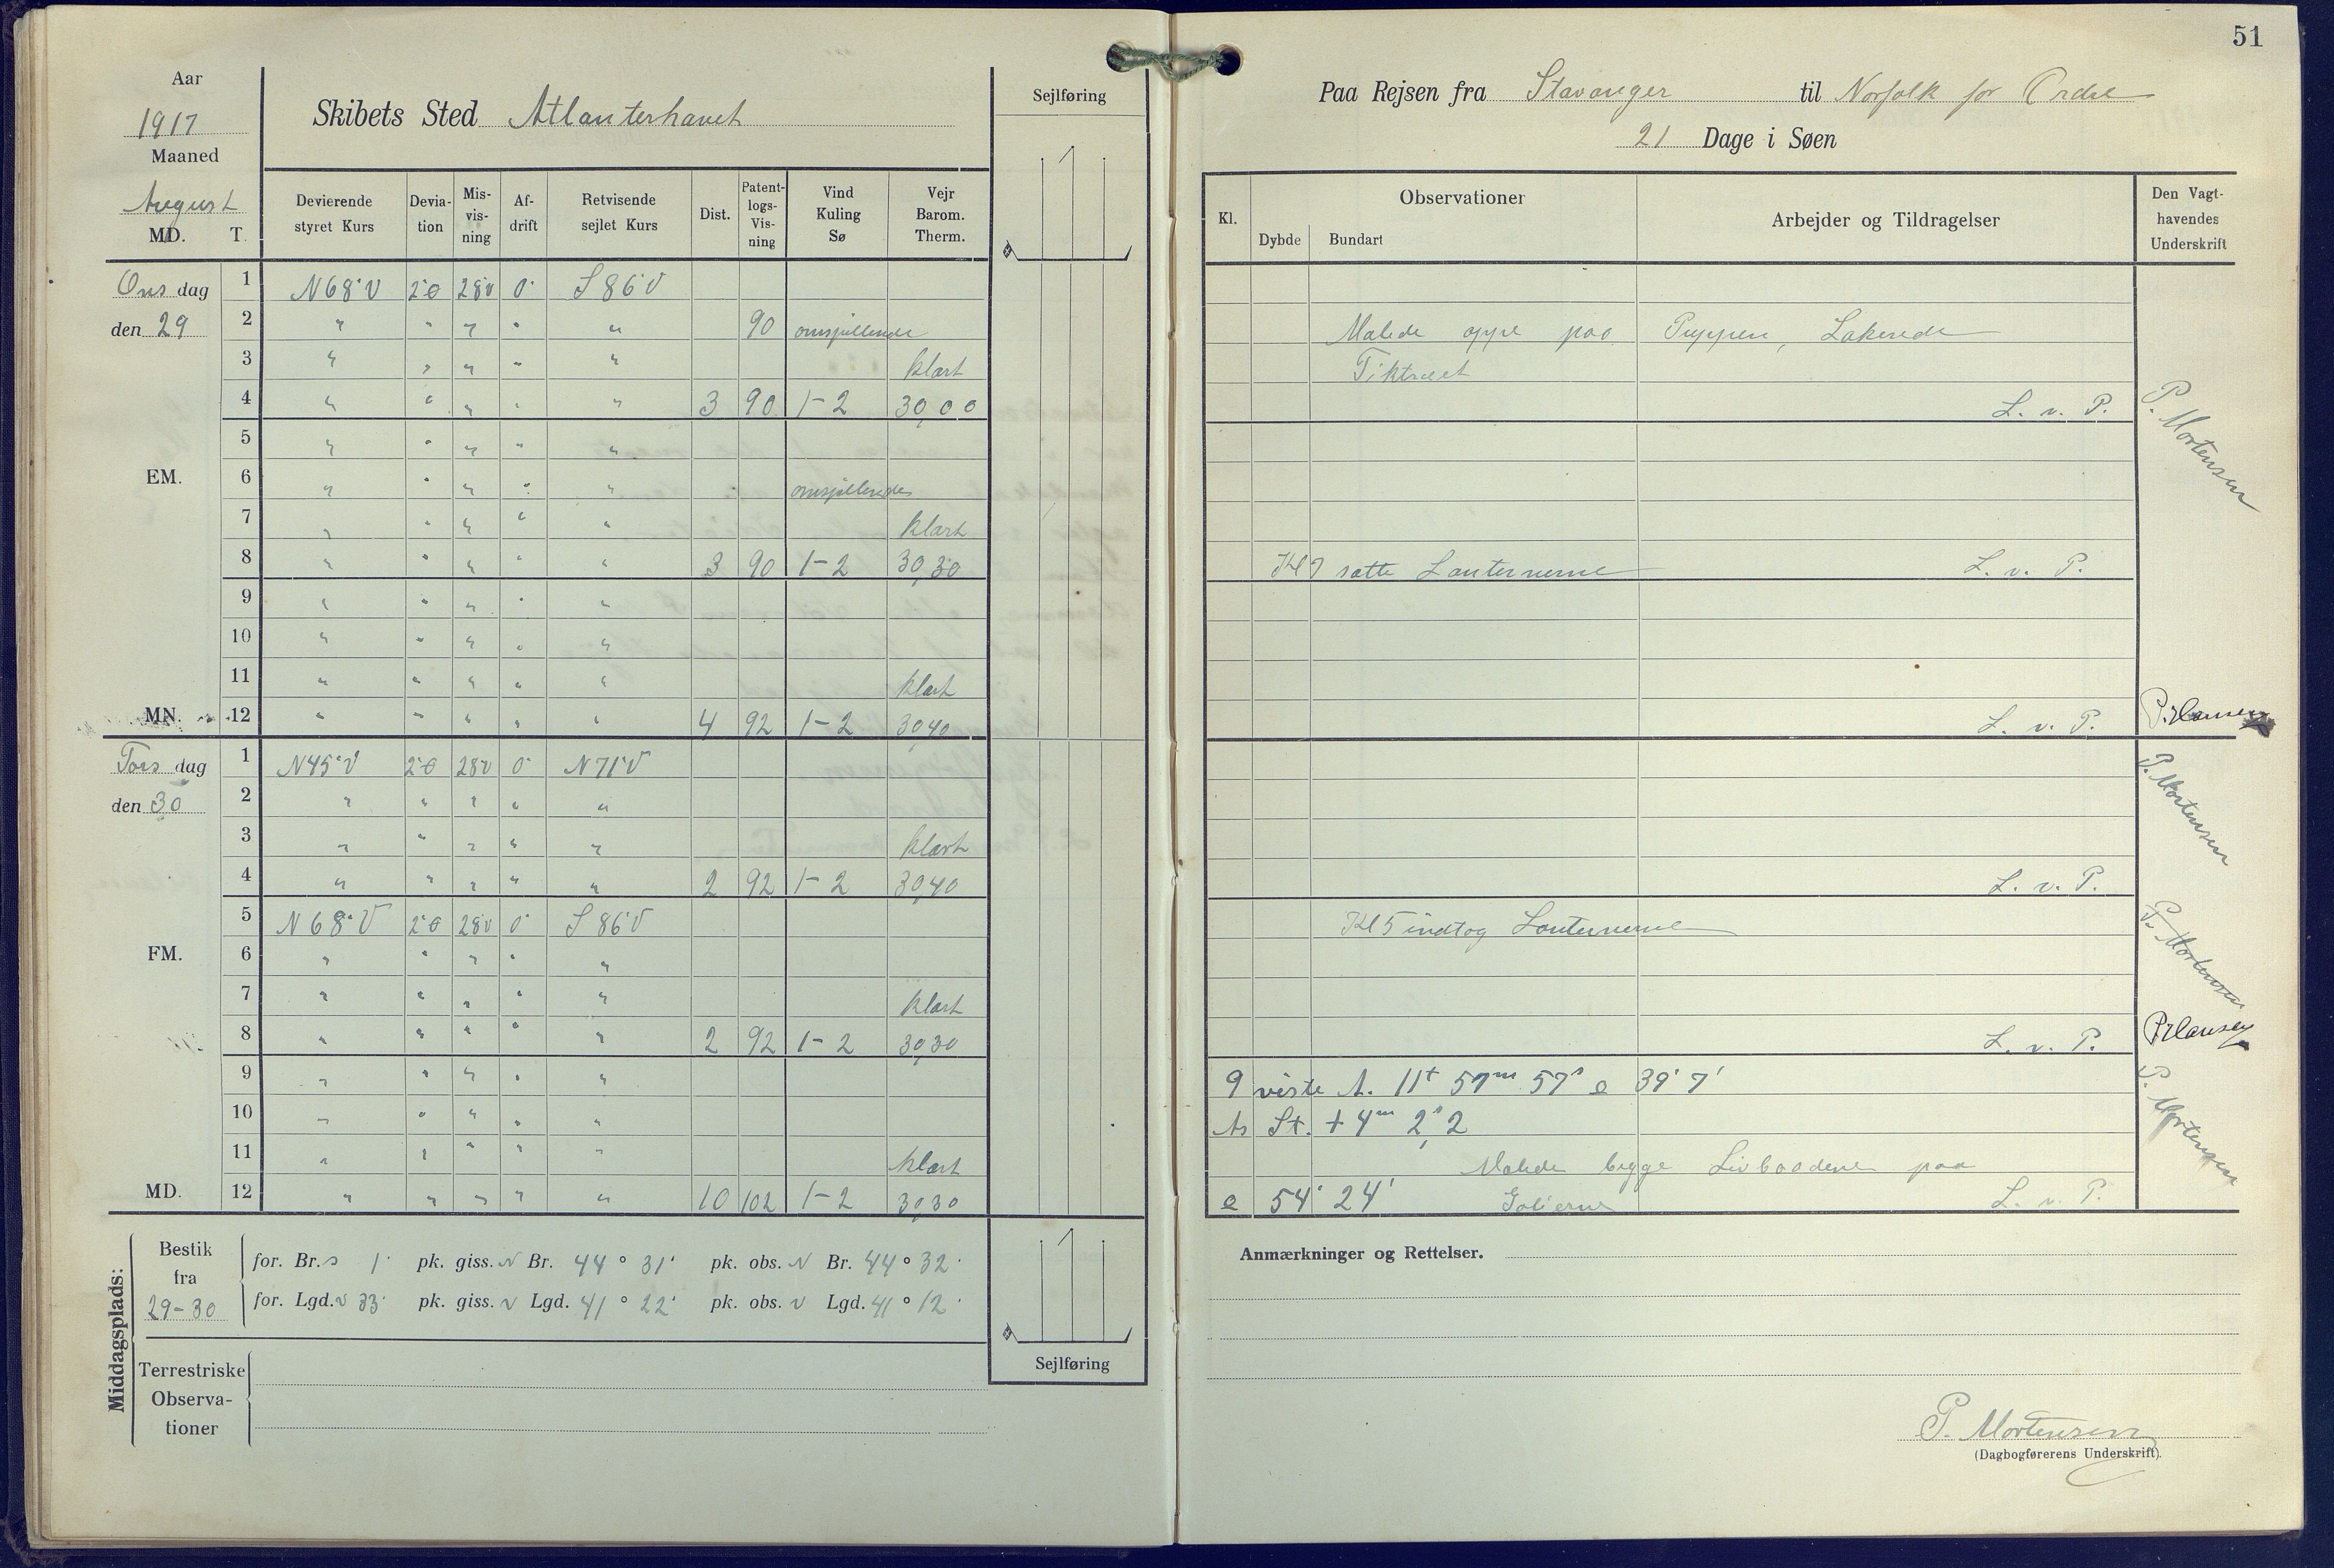 51
Aar
1917
Maaned
August
MD. T.
Skibets Sted Atlanterhavet
Sejlføring
Devierende styret Kurs Devia-tion Mis-vis-ning Af-drift Retvisende sejlet Kurs Dist. Patent-logs-Vis-ning Vind Kuling Sø Vejr Barom. Therm.
Ons dag 1 N 68° V 2° Ø 28 V 0° S 86° V
den 29 2 " " " " " 90 omspillende
3 " " " " " klart
4 " " " " " 3 90 1-2 30,00
5 " " " " "
EM. 6 " " " " " omspillende
7 " " " " " klart
8 " " " " " 3 90 1-2 30,30
9 " " " " "
10 " " " " "
11 " " " " " klart
MN. 12 " " " " " 4 92 1-2 30,40
Tors dag 1 N 45° V 2° Ø 28 V 0° N 71° V
den 30 2 " " " " "
3 " " " " " klart
4 " " " " " 2 92 1-2 30,40
5 N 68° V 2° Ø 28 V 0° S 86° V
FM. 6 " " " " "
7 " " " " " klart
8 " " " " " 2 92 1-2 30,30
9 " " " " "
10 " " " " "
11 " " " " " klart
MD. 12 " " " " " 10 102 1-2 30,30
Middagsplads:
Bestik fra 29-30
for. Br. S 1' pk. giss. N Br. 44° 31' pk. obs. N Br. 44° 32'
for. Lgd. V 33' pk. giss. V Lgd. 41° 22' pk. obs. V Lgd. 41° 12'
Terrestriske Observa-tioner
Sejlføring
Paa Rejsen fra Stavanger til Norfolk for Ordre
21 Dage i Søen
Kl. Observationer Dybde Bundart Arbejder og Tildragelser Den Vagt-havendes Underskrift
Malede oppe paa Puppen, Lakerede
Tiktræet
L. v. P. P. Mortensen
Kl 7 satte Lanternerne L. v. P.
L. v. P. P. Hansen
P. Mortensen
L. v. P.
Kl 5 indtog Lanternerne P. Mortensen
L. v. P. P. Hansen
9 viste A. 11t 57m 57s 39° 7'
St. + 4m 2,s2 P. Mortensen
Malede begge Livbaadene paa
54° 24' L. v. P.
Anmærkninger og Rettelser.
P. Mortensen
(Dagbogførerens Underskrift).